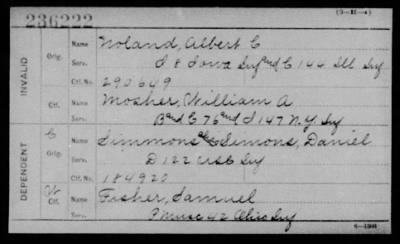 236222
(3-11-4)
INVALID
Orig.
Name Noland, Albert C
Serv. I 8 Iowa Inf and C 144 Ill Inf
Ctf. No. 290649
Ctf.
Name Mosher, William A
Serv. B and C 76 and I 147 N.Y. Inf
DEPENDENT
C
Orig.
Name Simmons alias Simons, Daniel
Serv. D 122 USC Inf
Ctf. No. 184920
W
Ctf.
Name Fisher, Samuel
Serv. Prin Musc 42 Ohio Inf